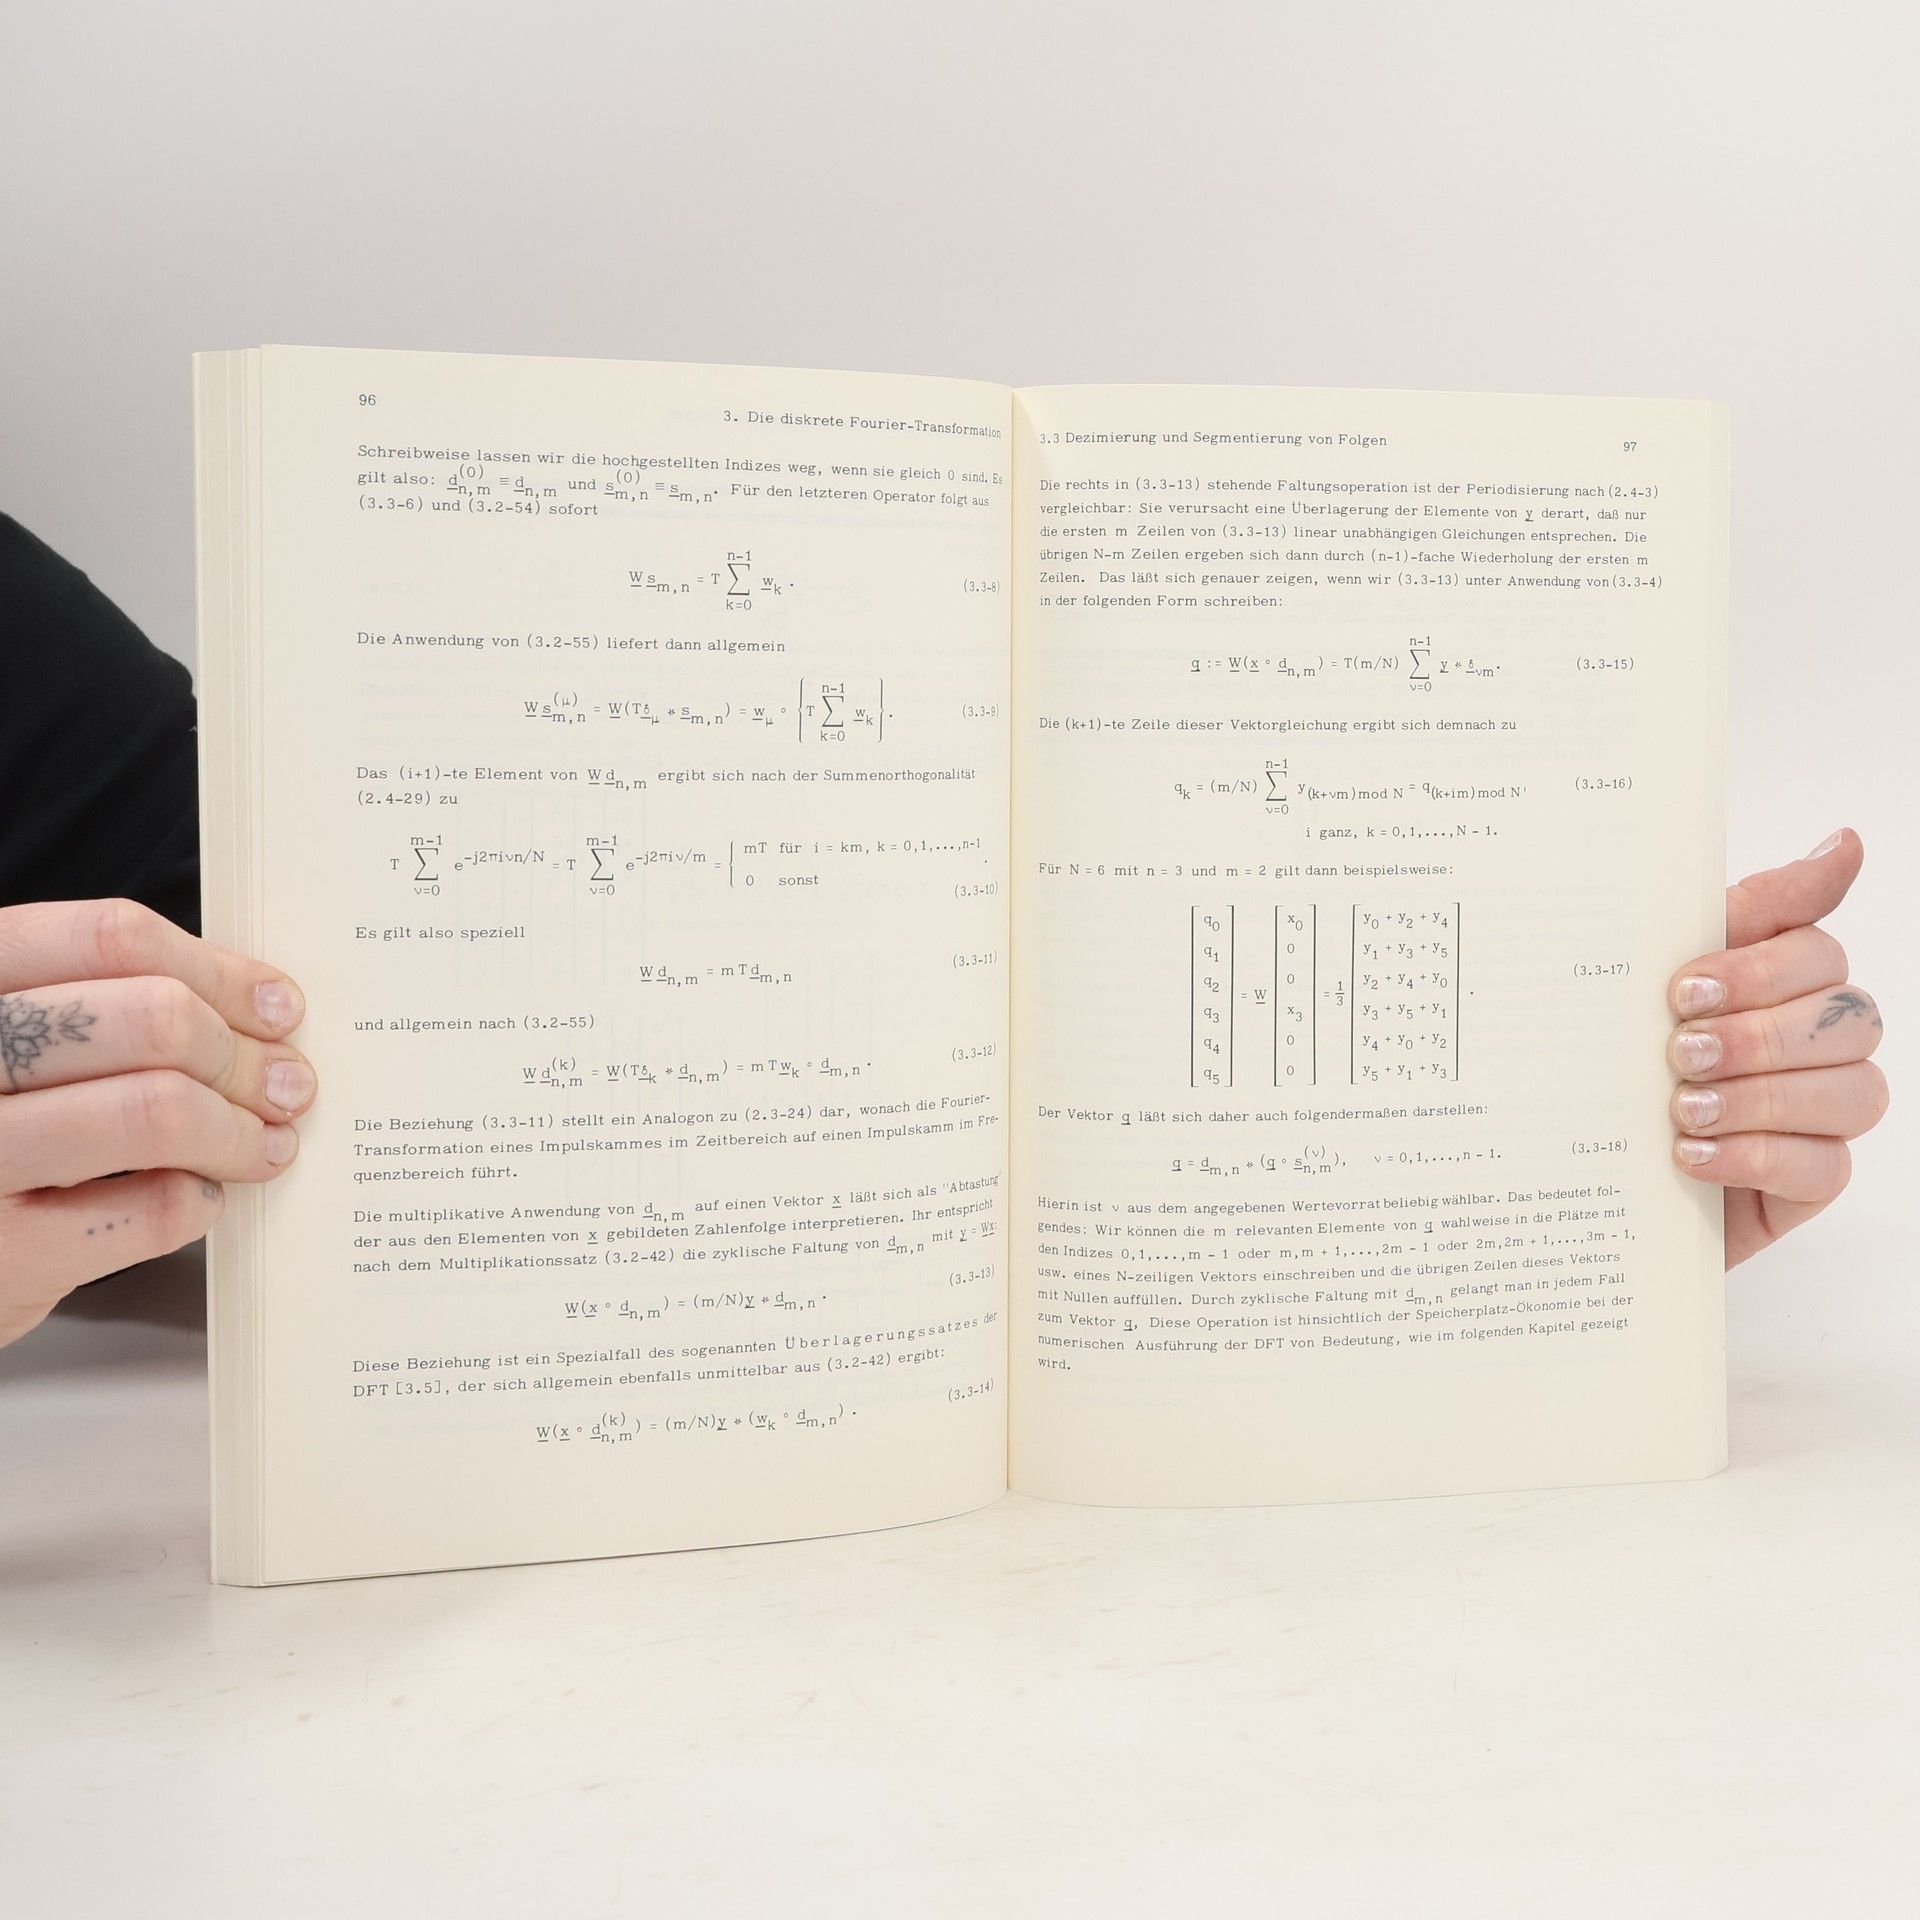 96
3. Die diskrete Fourier-Transformation
Schreibweise lassen wir die hochgestellten Indizes weg, wenn sie gleich 0 sind. Es
gilt also: d̲_{n,m}^{(0)} ≡ d̲_{n,m} und s̲_{m,n}^{(0)} ≡ s̲_{m,n}. Für den letzteren Operator folgt aus
(3.3-6) und (3.2-54) sofort
W̲ s̲_{m,n} = T ∑_{k=0}^{n-1} w̲_k . (3.3-8)
Die Anwendung von (3.2-55) liefert dann allgemein
W̲ s̲_{m,n}^{(μ)} = W̲(Tδ̲_μ * s̲_{m,n}) = w̲_μ ∘ {T ∑_{k=0}^{n-1} w̲_k}. (3.3-9)
Das (i+1)-te Element von W̲ d̲_{n,m} ergibt sich nach der Summenorthogonalität
(2.4-29) zu
T ∑_{ν=0}^{m-1} e^{-j2πiνn/N} = T ∑_{ν=0}^{m-1} e^{-j2πiν/m} = { mT für i = km, k = 0,1,...,n-1
0 sonst . (3.3-10)
Es gilt also speziell
W̲ d̲_{n,m} = m T d̲_{m,n} (3.3-11)
und allgemein nach (3.2-55)
W̲ d̲_{n,m}^{(k)} = W̲(Tδ̲_k * d̲_{n,m}) = m T w̲_k ∘ d̲_{m,n} . (3.3-12)
Die Beziehung (3.3-11) stellt ein Analogon zu (2.3-24) dar, wonach die Fourier-
Transformation eines Impulskammes im Zeitbereich auf einen Impulskamm im Fre-
quenzbereich führt.
Die multiplikative Anwendung von d̲_{n,m} auf einen Vektor x̲ läßt sich als "Abtastung"
der aus den Elementen von x̲ gebildeten Zahlenfolge interpretieren. Ihr entspricht
nach dem Multiplikationssatz (3.2-42) die zyklische Faltung von d̲_{m,n} mit y̲ = W̲x̲:
W̲(x̲ ∘ d̲_{n,m}) = (m/N)y̲ * d̲_{m,n} . (3.3-13)
Diese Beziehung ist ein Spezialfall des sogenannten Überlagerungssatzes der
DFT [3.5], der sich allgemein ebenfalls unmittelbar aus (3.2-42) ergibt:
W̲(x̲ ∘ d̲_{n,m}^{(k)}) = (m/N)y̲ * (w̲_k ∘ d̲_{m,n}) . (3.3-14)
3.3 Dezimierung und Segmentierung von Folgen
97
Die rechts in (3.3-13) stehende Faltungsoperation ist der Periodisierung nach (2.4-3)
vergleichbar: Sie verursacht eine Überlagerung der Elemente von y̲ derart, daß nur
die ersten m Zeilen von (3.3-13) linear unabhängigen Gleichungen entsprechen. Die
übrigen N-m Zeilen ergeben sich dann durch (n-1)-fache Wiederholung der ersten m
Zeilen. Das läßt sich genauer zeigen, wenn wir (3.3-13) unter Anwendung von (3.3-4)
in der folgenden Form schreiben:
q̲ := W̲(x̲ ∘ d̲_{n,m}) = T(m/N) ∑_{ν=0}^{n-1} y̲ * δ̲_{νm}. (3.3-15)
Die (k+1)-te Zeile dieser Vektorgleichung ergibt sich demnach zu
q_k = (m/N) ∑_{ν=0}^{n-1} y_{(k+νm) mod N} = q_{(k+im) mod N}, (3.3-16)
i ganz, k = 0,1,...,N - 1.
Für N = 6 mit n = 3 und m = 2 gilt dann beispielsweise:
q_0 x_0 y_0 + y_2 + y_4
q_1 0 y_1 + y_3 + y_5
q_2 0 y_2 + y_4 + y_0
= W̲ = 1/3 . (3.3-17)
q_3 x_3 y_3 + y_5 + y_1
q_4 0 y_4 + y_0 + y_2
q_5 0 y_5 + y_1 + y_3
Der Vektor q̲ läßt sich daher auch folgendermaßen darstellen:
q̲ = d̲_{m,n} * (q̲ ∘ s̲_{n,m}^{(ν)}), ν = 0,1,...,n - 1. (3.3-18)
Hierin ist ν aus dem angegebenen Wertevorrat beliebig wählbar. Das bedeutet fol-
gendes: Wir können die m relevanten Elemente von q̲ wahlweise in die Plätze mit
den Indizes 0,1,...,m - 1 oder m,m + 1,...,2m - 1 oder 2m,2m + 1,...,3m - 1,
usw. eines N-zeiligen Vektors einschreiben und die übrigen Zeilen dieses Vektors
mit Nullen auffüllen. Durch zyklische Faltung mit d̲_{m,n} gelangt man in jedem Fall
zum Vektor q̲, Diese Operation ist hinsichtlich der Speicherplatz-Ökonomie bei der
numerischen Ausführung der DFT von Bedeutung, wie im folgenden Kapitel gezeigt
wird.